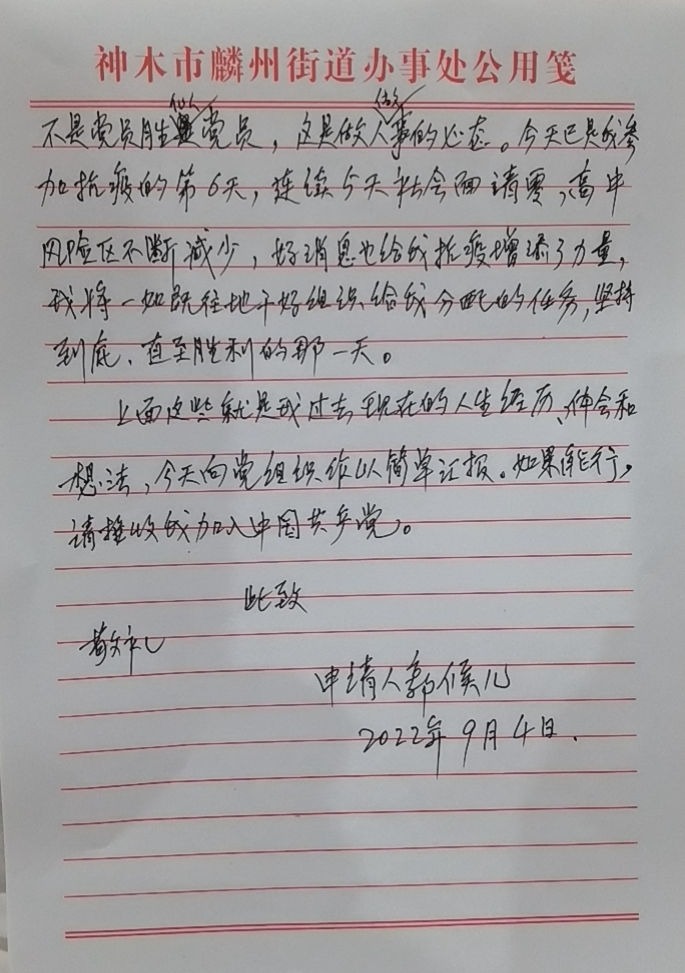 神木市麟州街道办事处公用笺
不是党员胜似党员，这是做人做事的心态。今天已是我参
加抗疫的第6天，连续5天社会面清零，高中
风险区不断减少，好消息也给我抗疫增添了力量，
我将一如既往地干好组织给我分配的任务，坚持
到底，直至胜利的那一天。
上面这些就是我过去、现在的人生经历、体会和
想法，今天向党组织作以简单汇报。如果能行，
请接收我加入中国共产党。
此致
敬礼
申请人郭候儿
2022年9月4日.